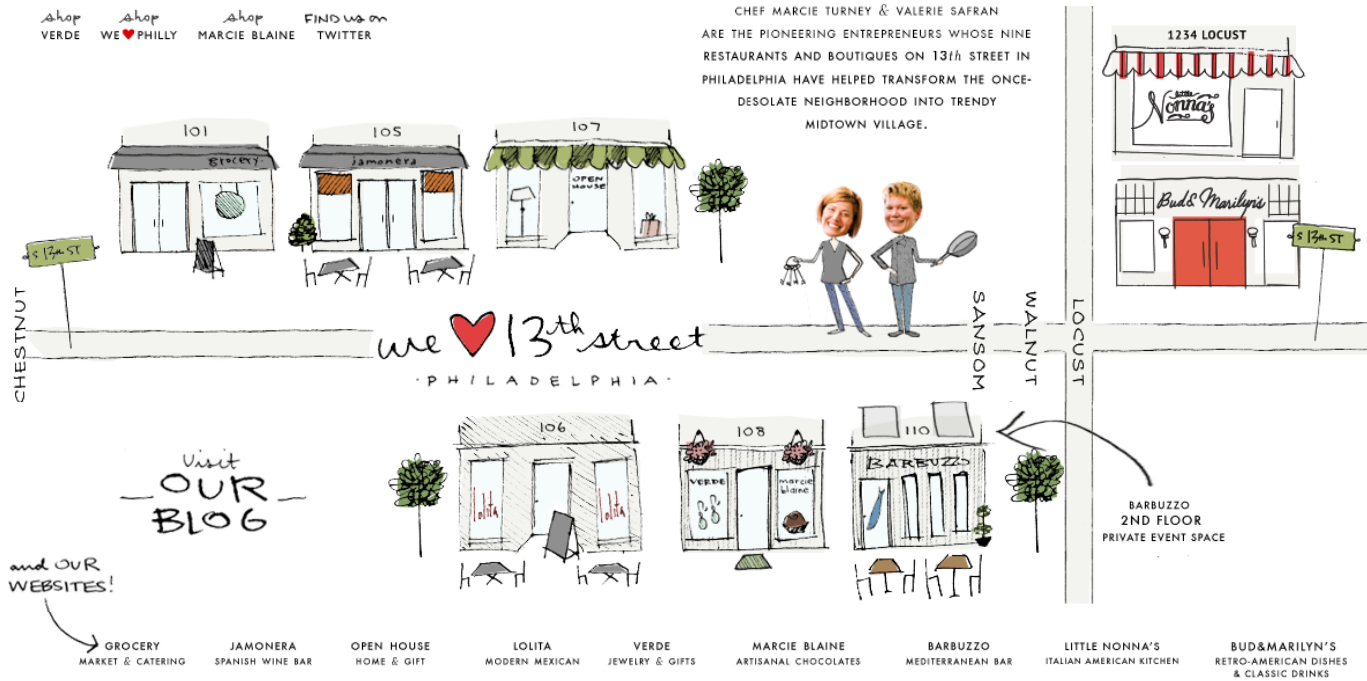 shop
VERDE
shop
WE♥PHILLY
shop
MARCIE BLAINE
FIND us on
TWITTER
CHEF MARCIE TURNEY & VALERIE SAFRAN
ARE THE PIONEERING ENTREPRENEURS WHOSE NINE
RESTAURANTS AND BOUTIQUES ON 13th STREET IN
PHILADELPHIA HAVE HELPED TRANSFORM THE ONCE-
DESOLATE NEIGHBORHOOD INTO TRENDY
MIDTOWN VILLAGE.
1234 LOCUST
little
Nonna's
Bud & Marilyn's
101
grocery.
105
jamonera
107
OPEN
HOUSE
S 13th ST
S 13th ST
CHESTNUT
we ♥ 13th street
·PHILADELPHIA·
SANSOM
WALNUT
LOCUST
Visit
OUR
BLOG
106
lolita
lolita
108
VERDE
marcie
blaine
110
BARBUZZO
BARBUZZO
2ND FLOOR
PRIVATE EVENT SPACE
and OUR
WEBSITES!
GROCERY
MARKET & CATERING
JAMONERA
SPANISH WINE BAR
OPEN HOUSE
HOME & GIFT
LOLITA
MODERN MEXICAN
VERDE
JEWELRY & GIFTS
MARCIE BLAINE
ARTISANAL CHOCOLATES
BARBUZZO
MEDITERRANEAN BAR
LITTLE NONNA'S
ITALIAN AMERICAN KITCHEN
BUD&MARILYN'S
RETRO-AMERICAN DISHES
& CLASSIC DRINKS